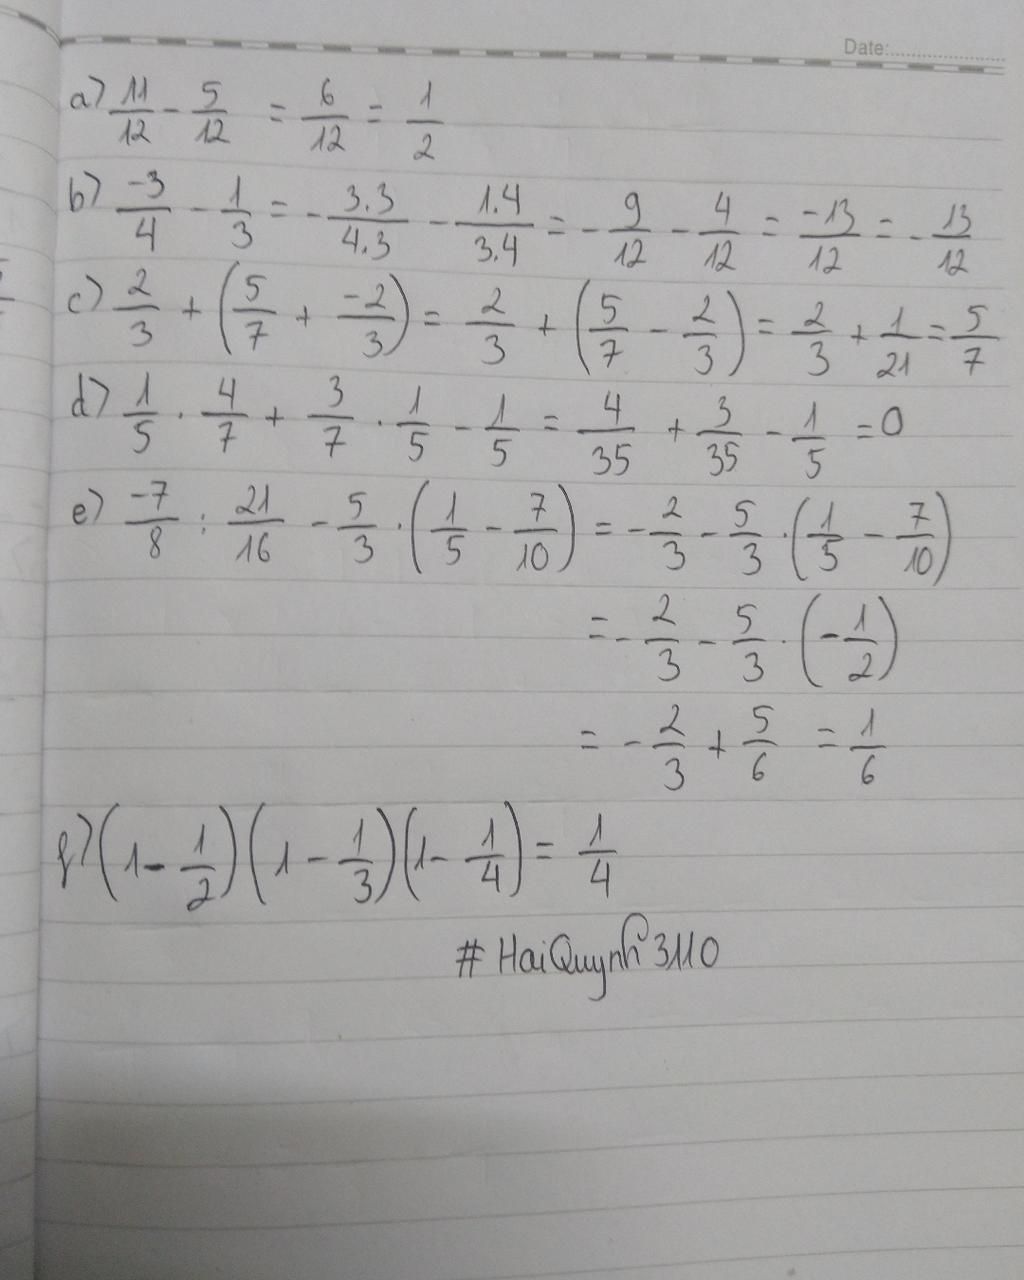 Date:
a) 11/12 - 5/12 = 6/12 = 1/2
b) -3/4 - 1/3 = - 3.3/4.3 - 1.4/3.4 = - 9/12 - 4/12 = -13/12 = - 13/12
c) 2/3 + (5/7 + -2/3) = 2/3 + (5/7 - 2/3) = 2/3 + 1/21 = 5/7
d) 1/5 . 4/7 + 3/7 . 1/5 - 1/5 = 4/35 + 3/35 - 1/5 = 0
e) -7/8 : 21/16 - 5/3 . (1/5 - 7/10) = - 2/3 - 5/3 . (1/5 - 7/10)
= - 2/3 - 5/3 . (- 1/2)
= - 2/3 + 5/6 = 1/6
f) (1 - 1/2) (1 - 1/3) (1 - 1/4) = 1/4
# HaiQuynh 3110